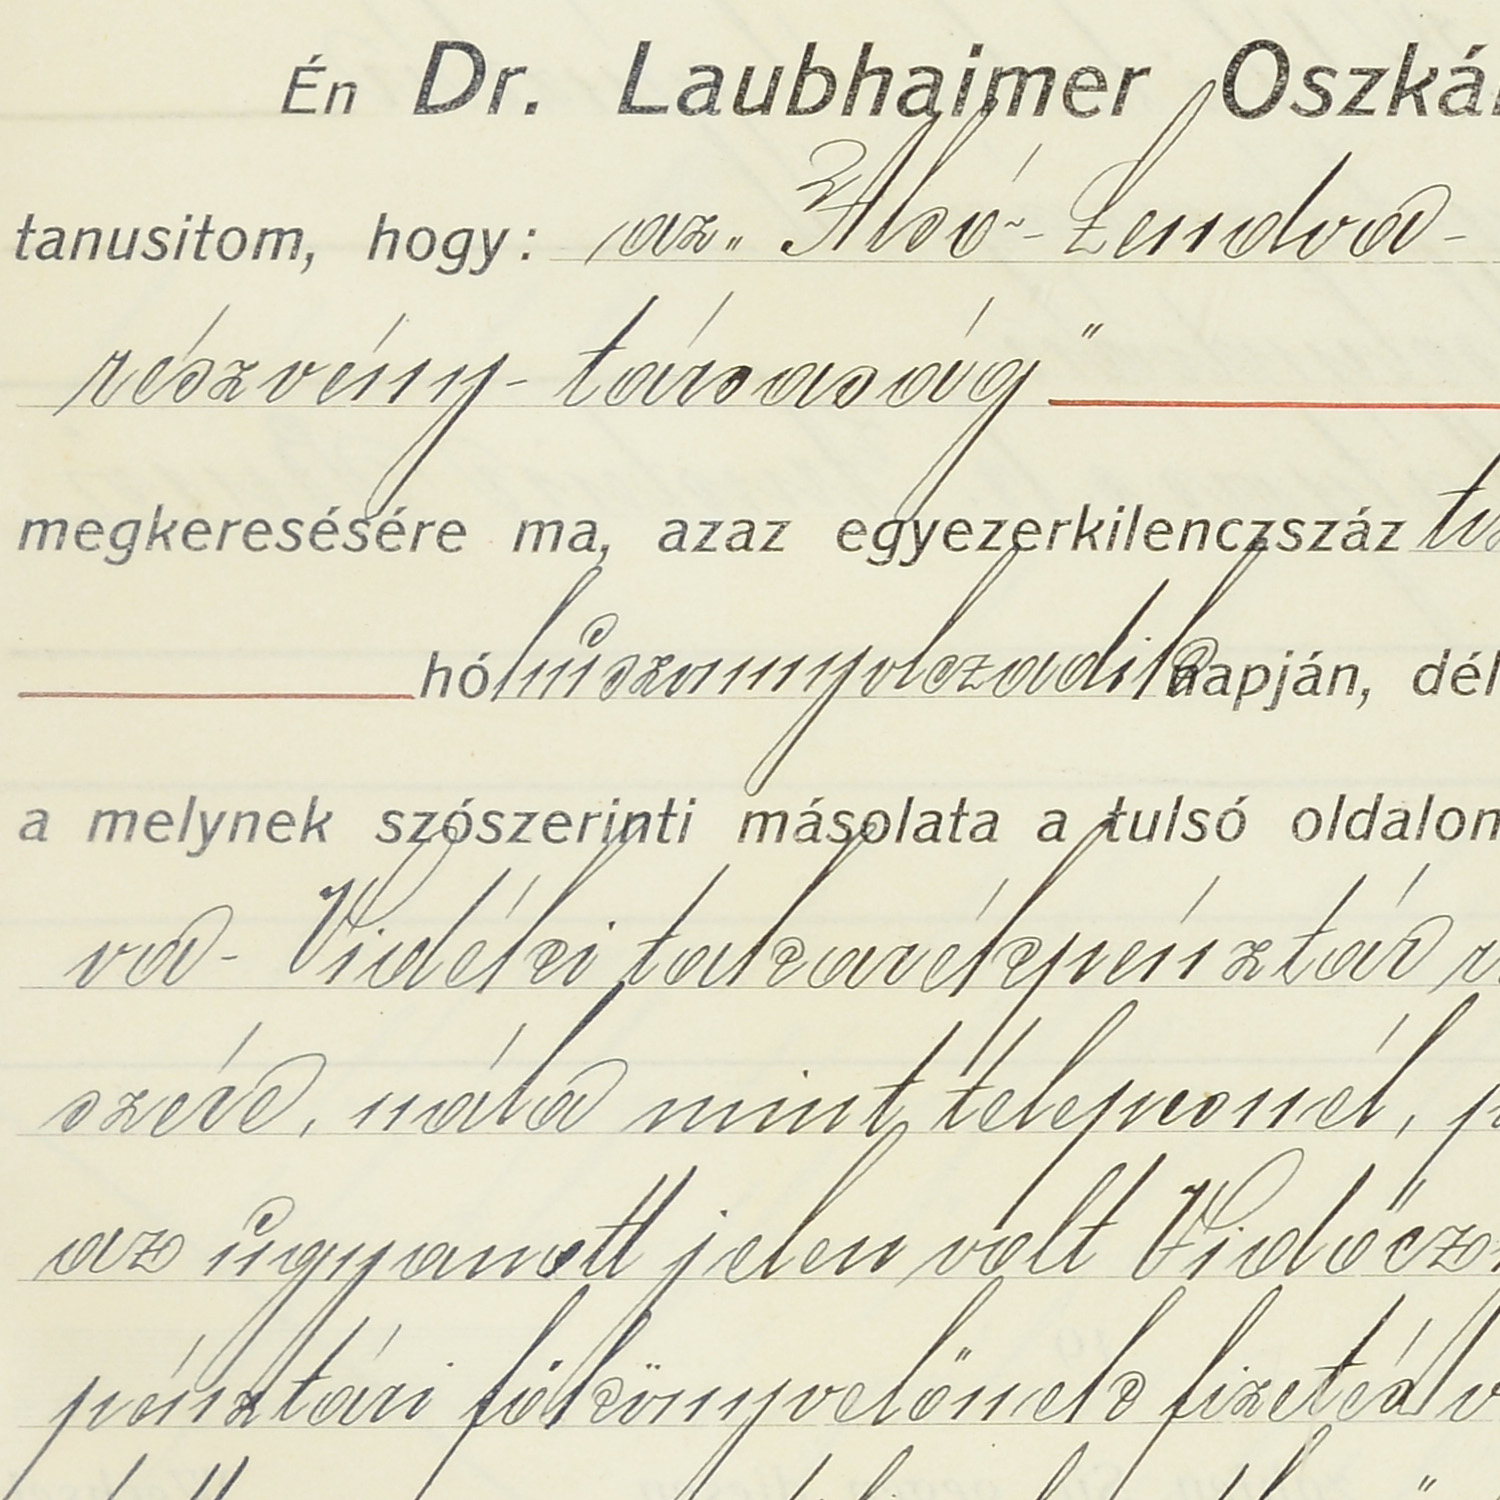 Én Dr. Laubhaimer Oszkár
tanusitom, hogy: az „Alsó-Lendva-
részvény-társaság"
megkeresésére ma, azaz egyezerkilenczszáz
hó húszonnyolczadik napján, dél
a melynek szószerinti másolata a tulsó oldalon
va-Vidéki takarékpénztár
szére, nála mint telepesnél,
az ugyanott jelen volt
pénztári főkönyvelőnek fizetés